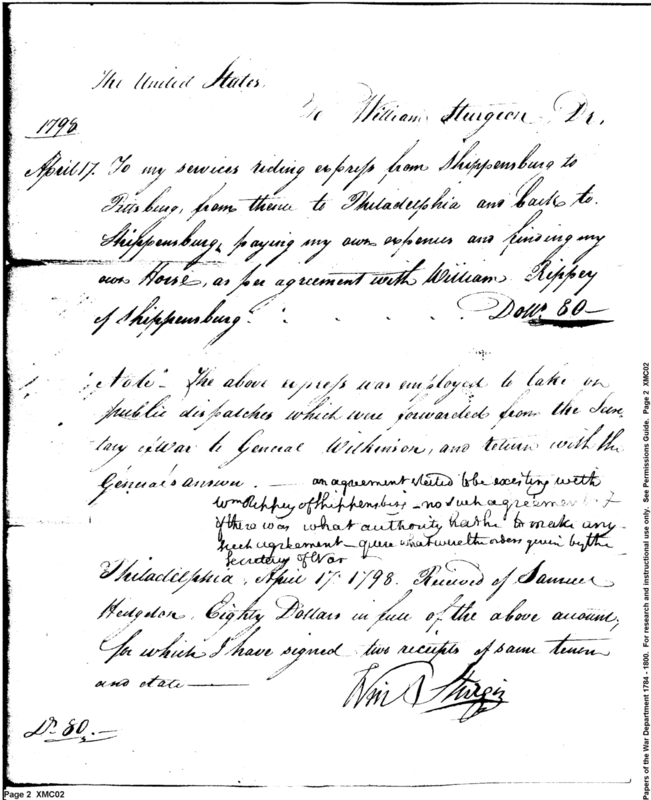 The United States.
To William Sturgeon Dr.
1798
April 17. To my services riding express from Shippensburg to
Pittsburg, from thence to Philadelphia and back to
Shippensburg, paying my own expences and finding my
own Horse, as per agreement with William Rippey
of Shippensburg. . . . . Dolls. 80—
Note - The above express was employed to take on
public dispatches which were forwarded from the Secre
tary of War to General Wilkinson, and return with the
General's answer. — an agreement stated to be existing with
Wm Rippey of Shippensburg - no such agreement
if there was what authority has he to make any
such agreement - quere what were the orders given by the
Secretary of War
Philadelphia, April 17. 1798. Received of Samuel
Hodgdon, Eighty Dollars in full of the above account,
for which I have signed two receipts of same tenor
and date —
Wm Sturgin
Ds. 80. —
Page 2 XMC02
Papers of the War Department 1784 - 1800. For research and instructional use only. See Permissions Guide. Page 2 XMC02